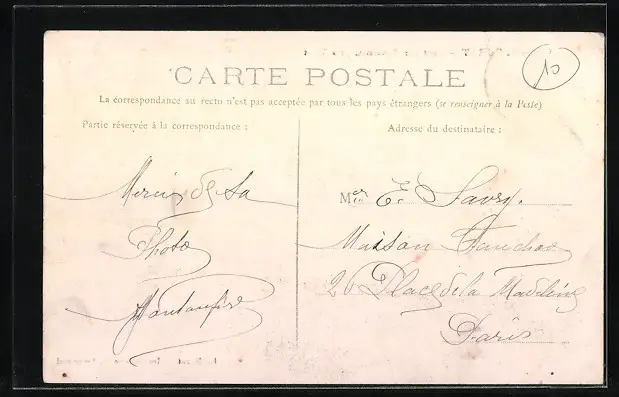 10
CARTE POSTALE
La correspondance au recto n'est pas acceptée par tous les pays étrangers (se renseigner à la Poste)
Partie réservée à la correspondance :
Adresse du destinataire :
Merci de sa
Photo
Mr E. Savry.
Maison
26 Place de la Madeleine
Paris